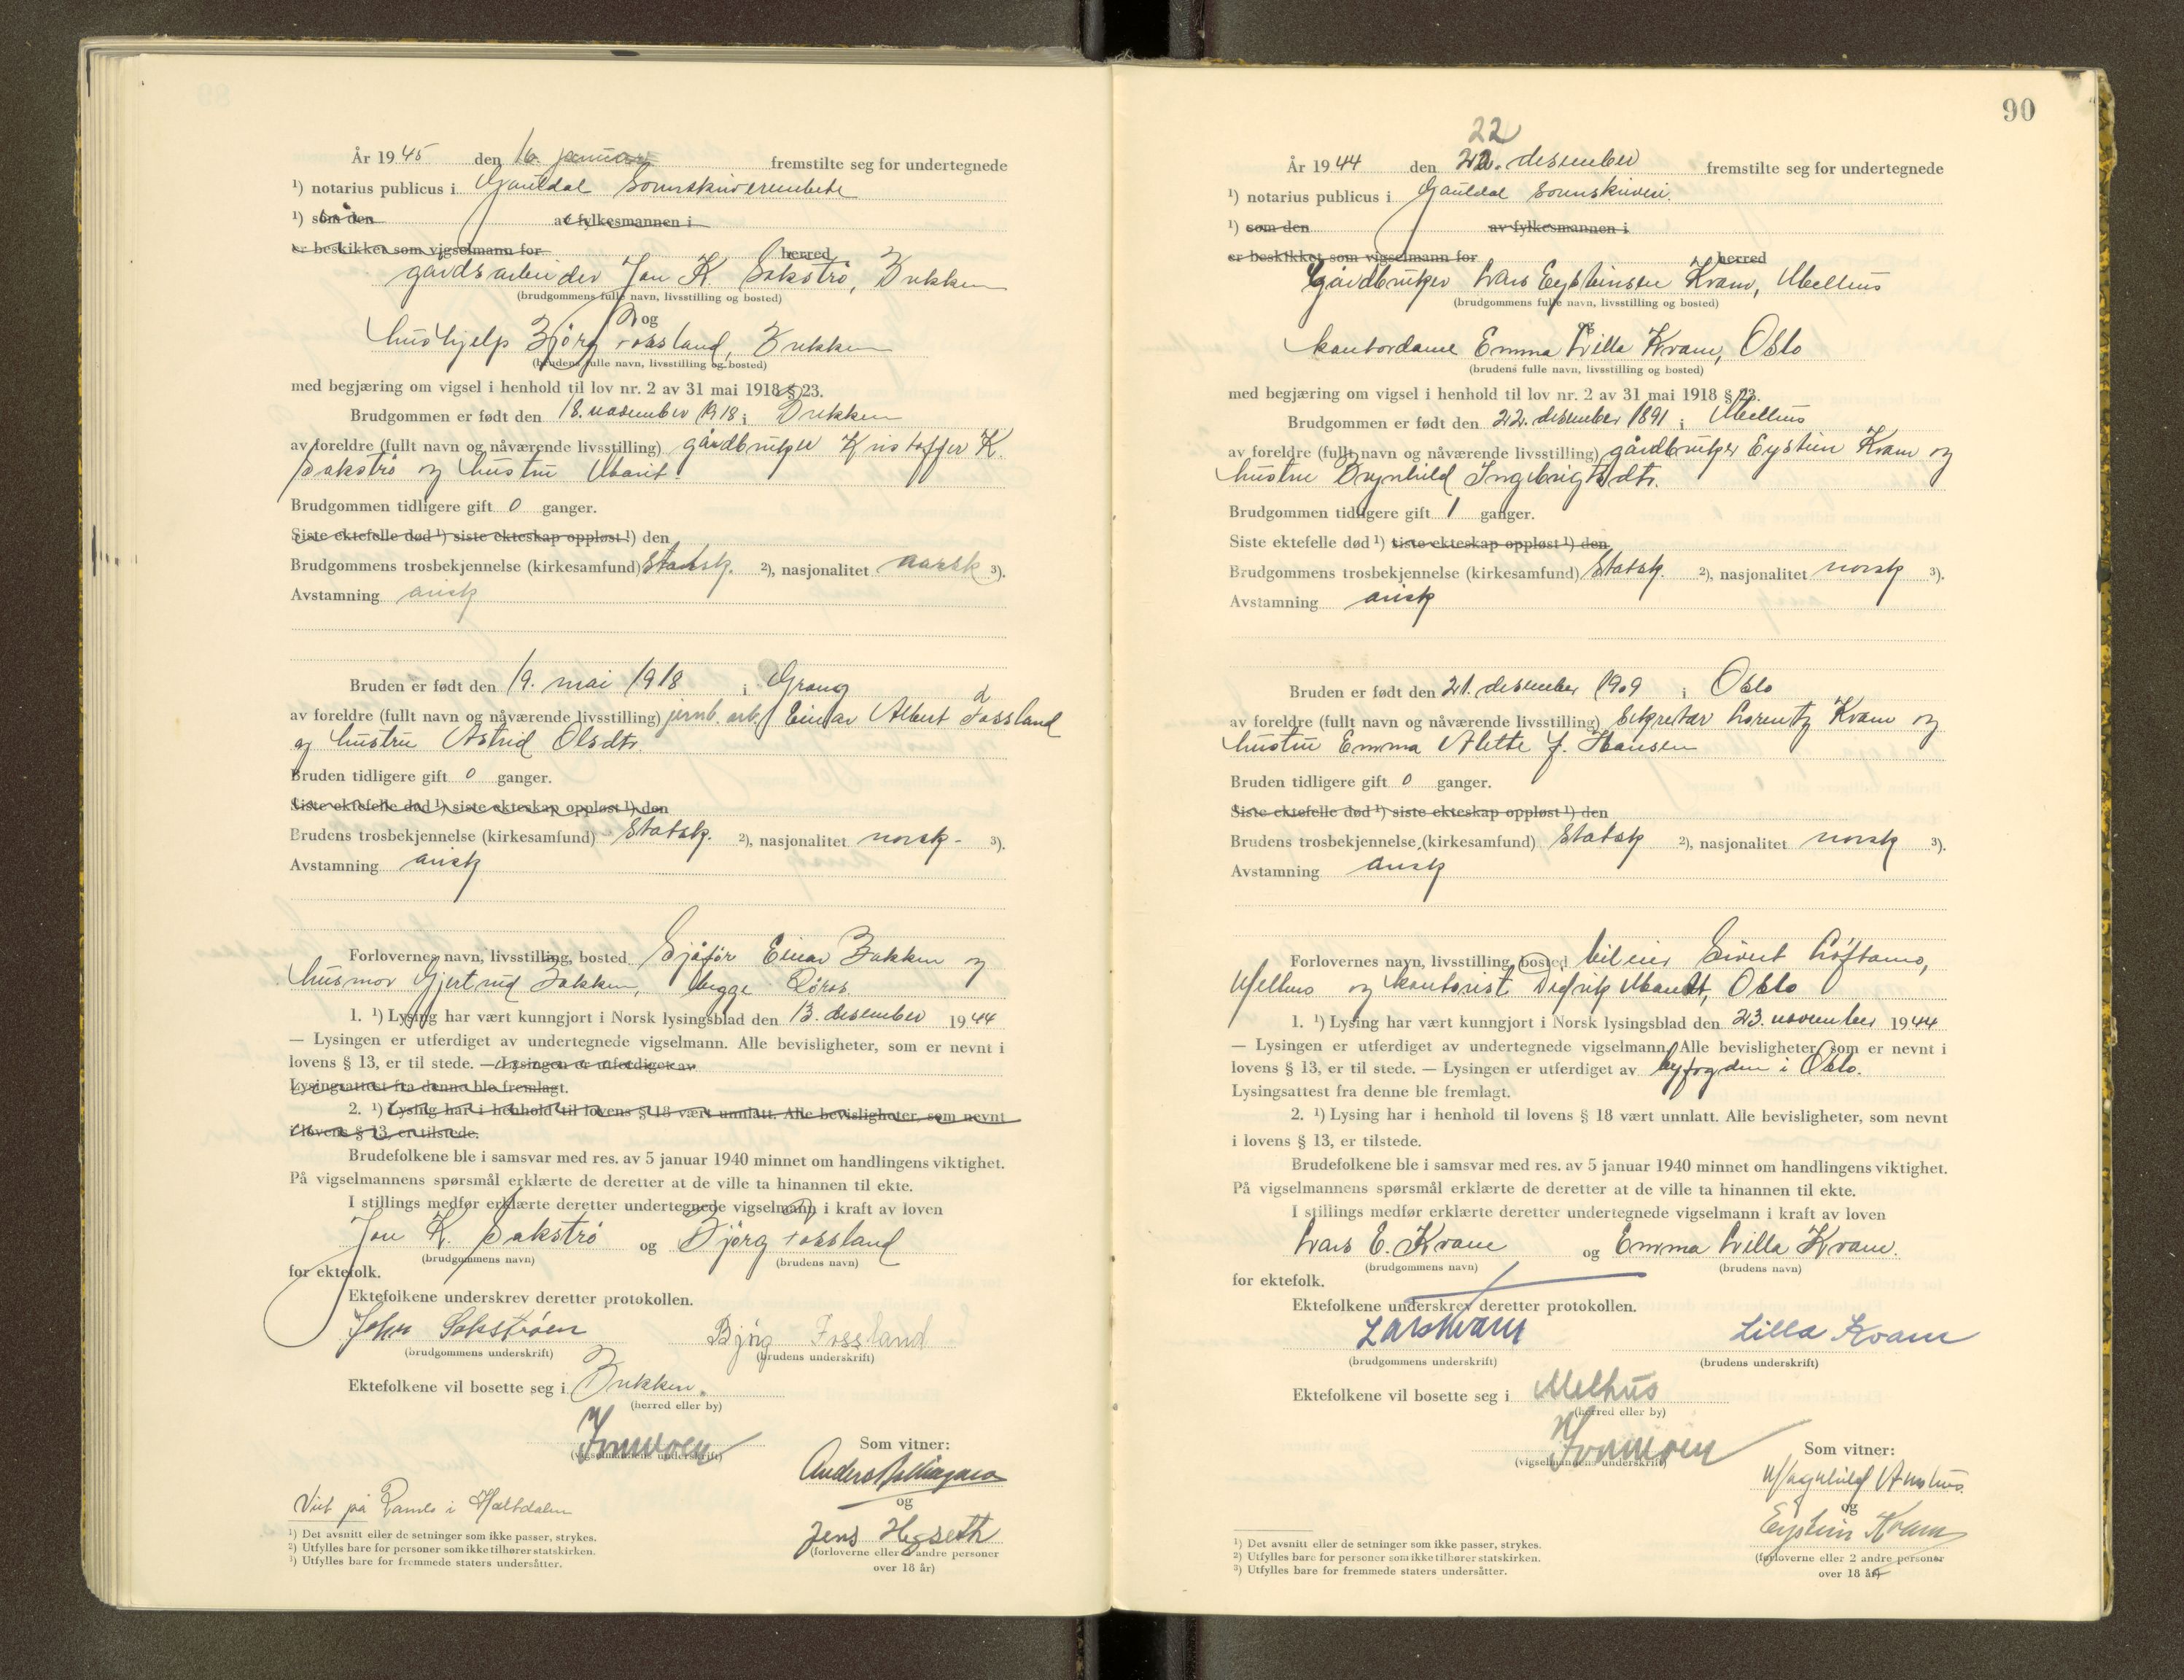 År 1945 den 16. januar fremstilte seg for undertegnede
¹) notarius publicus i Gauldal Sorenskriverembete
¹) som den av fylkesmannen i
er beskikket som vigselmann for herred
gårdsarbeider Jon K. Sakstrø, Brekken
(brudgommens fulle navn, livsstilling og bosted)
og
hushjelp Bjørg Fossland, Brekken
(brudens fulle navn, livsstilling og bosted)
med begjæring om vigsel i henhold til lov nr. 2 av 31 mai 1918 § 23.
Brudgommen er født den 18. november 1918 i Brekken
av foreldre (fullt navn og nåværende livsstilling) gårdbruker Kristoffer K.
Sakstrø og hustru Marit.
Brudgommen tidligere gift 0 ganger.
Siste ektefelle død ¹) siste ekteskap oppløst ¹) den
Brudgommens trosbekjennelse (kirkesamfund) Statsk. ²), nasjonalitet norsk ³).
Avstamning arisk
Bruden er født den 19. mai 1918 i Grong
av foreldre (fullt navn og nåværende livsstilling) jernb. arb. Einar Albert Fossland
og hustru Astrid Olsdtr.
Bruden tidligere gift 0 ganger.
Siste ektefelle død ¹) siste ekteskap oppløst ¹) den
Brudens trosbekjennelse (kirkesamfund) Statsk. ²), nasjonalitet norsk - ³).
Avstamning arisk
Forlovernes navn, livsstilling, bosted Sjåfør Einar Bakken og
husmor Gjertrud Bakken, begge Røros
1. ¹) Lysing har vært kunngjort i Norsk lysingsblad den 13. desember 1944
— Lysingen er utferdiget av undertegnede vigselmann. Alle bevisligheter, som er nevnt i
lovens § 13, er til stede. — Lysingen er utferdiget av
Lysingsattest fra denne ble fremlagt.
2. ¹) Lysing har i henhold til lovens § 18 vært unnlatt. Alle bevisligheter, som nevnt
i lovens § 13, er tilstede.
Brudefolkene ble i samsvar med res. av 5 januar 1940 minnet om handlingens viktighet.
På vigselmannens spørsmål erklærte de deretter at de ville ta hinannen til ekte.
I stillings medfør erklærte deretter undertegnede vigselmann i kraft av loven
Jon K. Sakstrø og Bjørg Fossland
(brudgommens navn) (brudens navn)
for ektefolk.
Ektefolkene underskrev deretter protokollen.
John Sakstrøen Bjørg Fossland
(brudgommens underskrift) (brudens underskrift)
Ektefolkene vil bosette seg i Brekken.
(herred eller by)
(vigselmannens underskrift)
Som vitner:
Anders
og
Jens Hegseth
(forloverne eller 2 andre personer
over 18 år)
Viet på Ramlo i Haltdalen
¹) Det avsnitt eller de setninger som ikke passer, strykes.
²) Utfylles bare for personer som ikke tilhører statskirken.
³) Utfylles bare for fremmede staters undersåtter.
90
22
År 1944 den 22. desember fremstilte seg for undertegnede
¹) notarius publicus i Gauldal sorenskriveri.
¹) som den av fylkesmannen i
er beskikket som vigselmann for herred
Gårdbruker Lars Eysteinsen Kvam, Melhus
(brudgommens fulle navn, livsstilling og bosted)
og
kontordame Emma Lilla Kvam, Oslo
(brudens fulle navn, livsstilling og bosted)
med begjæring om vigsel i henhold til lov nr. 2 av 31 mai 1918 § 23.
Brudgommen er født den 22. desember 1891 i Melhus
av foreldre (fullt navn og nåværende livsstilling) gårdbruker Eystein Kvam og
hustru Brynhild Ingebrigtsdtr.
Brudgommen tidligere gift 1 ganger.
Siste ektefelle død ¹) siste ekteskap oppløst ¹) den
Brudgommens trosbekjennelse (kirkesamfund) Statsk. ²), nasjonalitet norsk ³).
Avstamning arisk
Bruden er født den 21. desember 1909 i Oslo
av foreldre (fullt navn og nåværende livsstilling) Sekretær Lorentz Kvam og
hustru Emma Alette f. Hansen
Bruden tidligere gift 0 ganger.
Siste ektefelle død ¹) siste ekteskap oppløst ¹) den
Brudens trosbekjennelse (kirkesamfund) Statsk ²), nasjonalitet norsk ³).
Avstamning arisk
Forlovernes navn, livsstilling, bosted bileier Sivert Löftamo,
Melhus og kontorist Didrik Mandt, Oslo
1. ¹) Lysing har vært kunngjort i Norsk lysingsblad den 23. november 1944
— Lysingen er utferdiget av undertegnede vigselmann. Alle bevisligheter, som er nevnt i
lovens § 13, er til stede. — Lysingen er utferdiget av byfogden i Oslo.
Lysingsattest fra denne ble fremlagt.
2. ¹) Lysing har i henhold til lovens § 18 vært unnlatt. Alle bevisligheter, som nevnt
i lovens § 13, er tilstede.
Brudefolkene ble i samsvar med res. av 5 januar 1940 minnet om handlingens viktighet.
På vigselmannens spørsmål erklærte de deretter at de ville ta hinannen til ekte.
I stillings medfør erklærte deretter undertegnede vigselmann i kraft av loven
Lars E. Kvam og Emma Lilla Kvam.
(brudgommens navn) (brudens navn)
for ektefolk.
Ektefolkene underskrev deretter protokollen.
Lars Kvam Lilla Kvam
(brudgommens underskrift) (brudens underskrift)
Ektefolkene vil bosette seg i Melhus
(herred eller by)
(vigselmannens underskrift)
Som vitner:
Magnhild
og
Eystein Kvam
(forloverne eller 2 andre personer
over 18 år)
¹) Det avsnitt eller de setninger som ikke passer, strykes.
²) Utfylles bare for personer som ikke tilhører statskirken.
³) Utfylles bare for fremmede staters undersåtter.